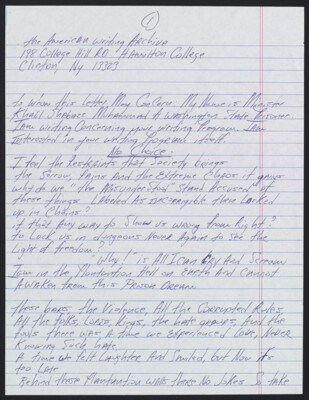 1
The American Writing Archive
198 College Hill RD Hamilton College
Clinton, Ny 13323
To whom this letter May Concern: My Name is Minister
Khalil Shabazz Muhammad A Washington State Prisoner
I am writing Concerning your writing Program. I am
Interested in your writing Programs itself.
No Choice
I feel the Restraints that Society brings
the Sorrow, Pains and the Extreme Chaos it gives
why do we "the Misunderstood" Stand Accused of
these things Labeled As then Locked
up in Chains?
is this Any way to Show us wrong from Right?
to Lock us in dungeons Never Again to See the
Light of freedom?
Why! is All I Can Cry And Scream
Low in the Plantation Hell on Earth And Cannot
Awaken from this Prison Dream
these bars, the Violence, All the Corrupted Rules,
All the falls, Lives, Kings, the And the
fools there was A time we Experienced Love, Never
Knowing Such hate
A time we felt Laughter And Smiled, but Now its
too Late
Behind these Plantation walls there No Jokes So take